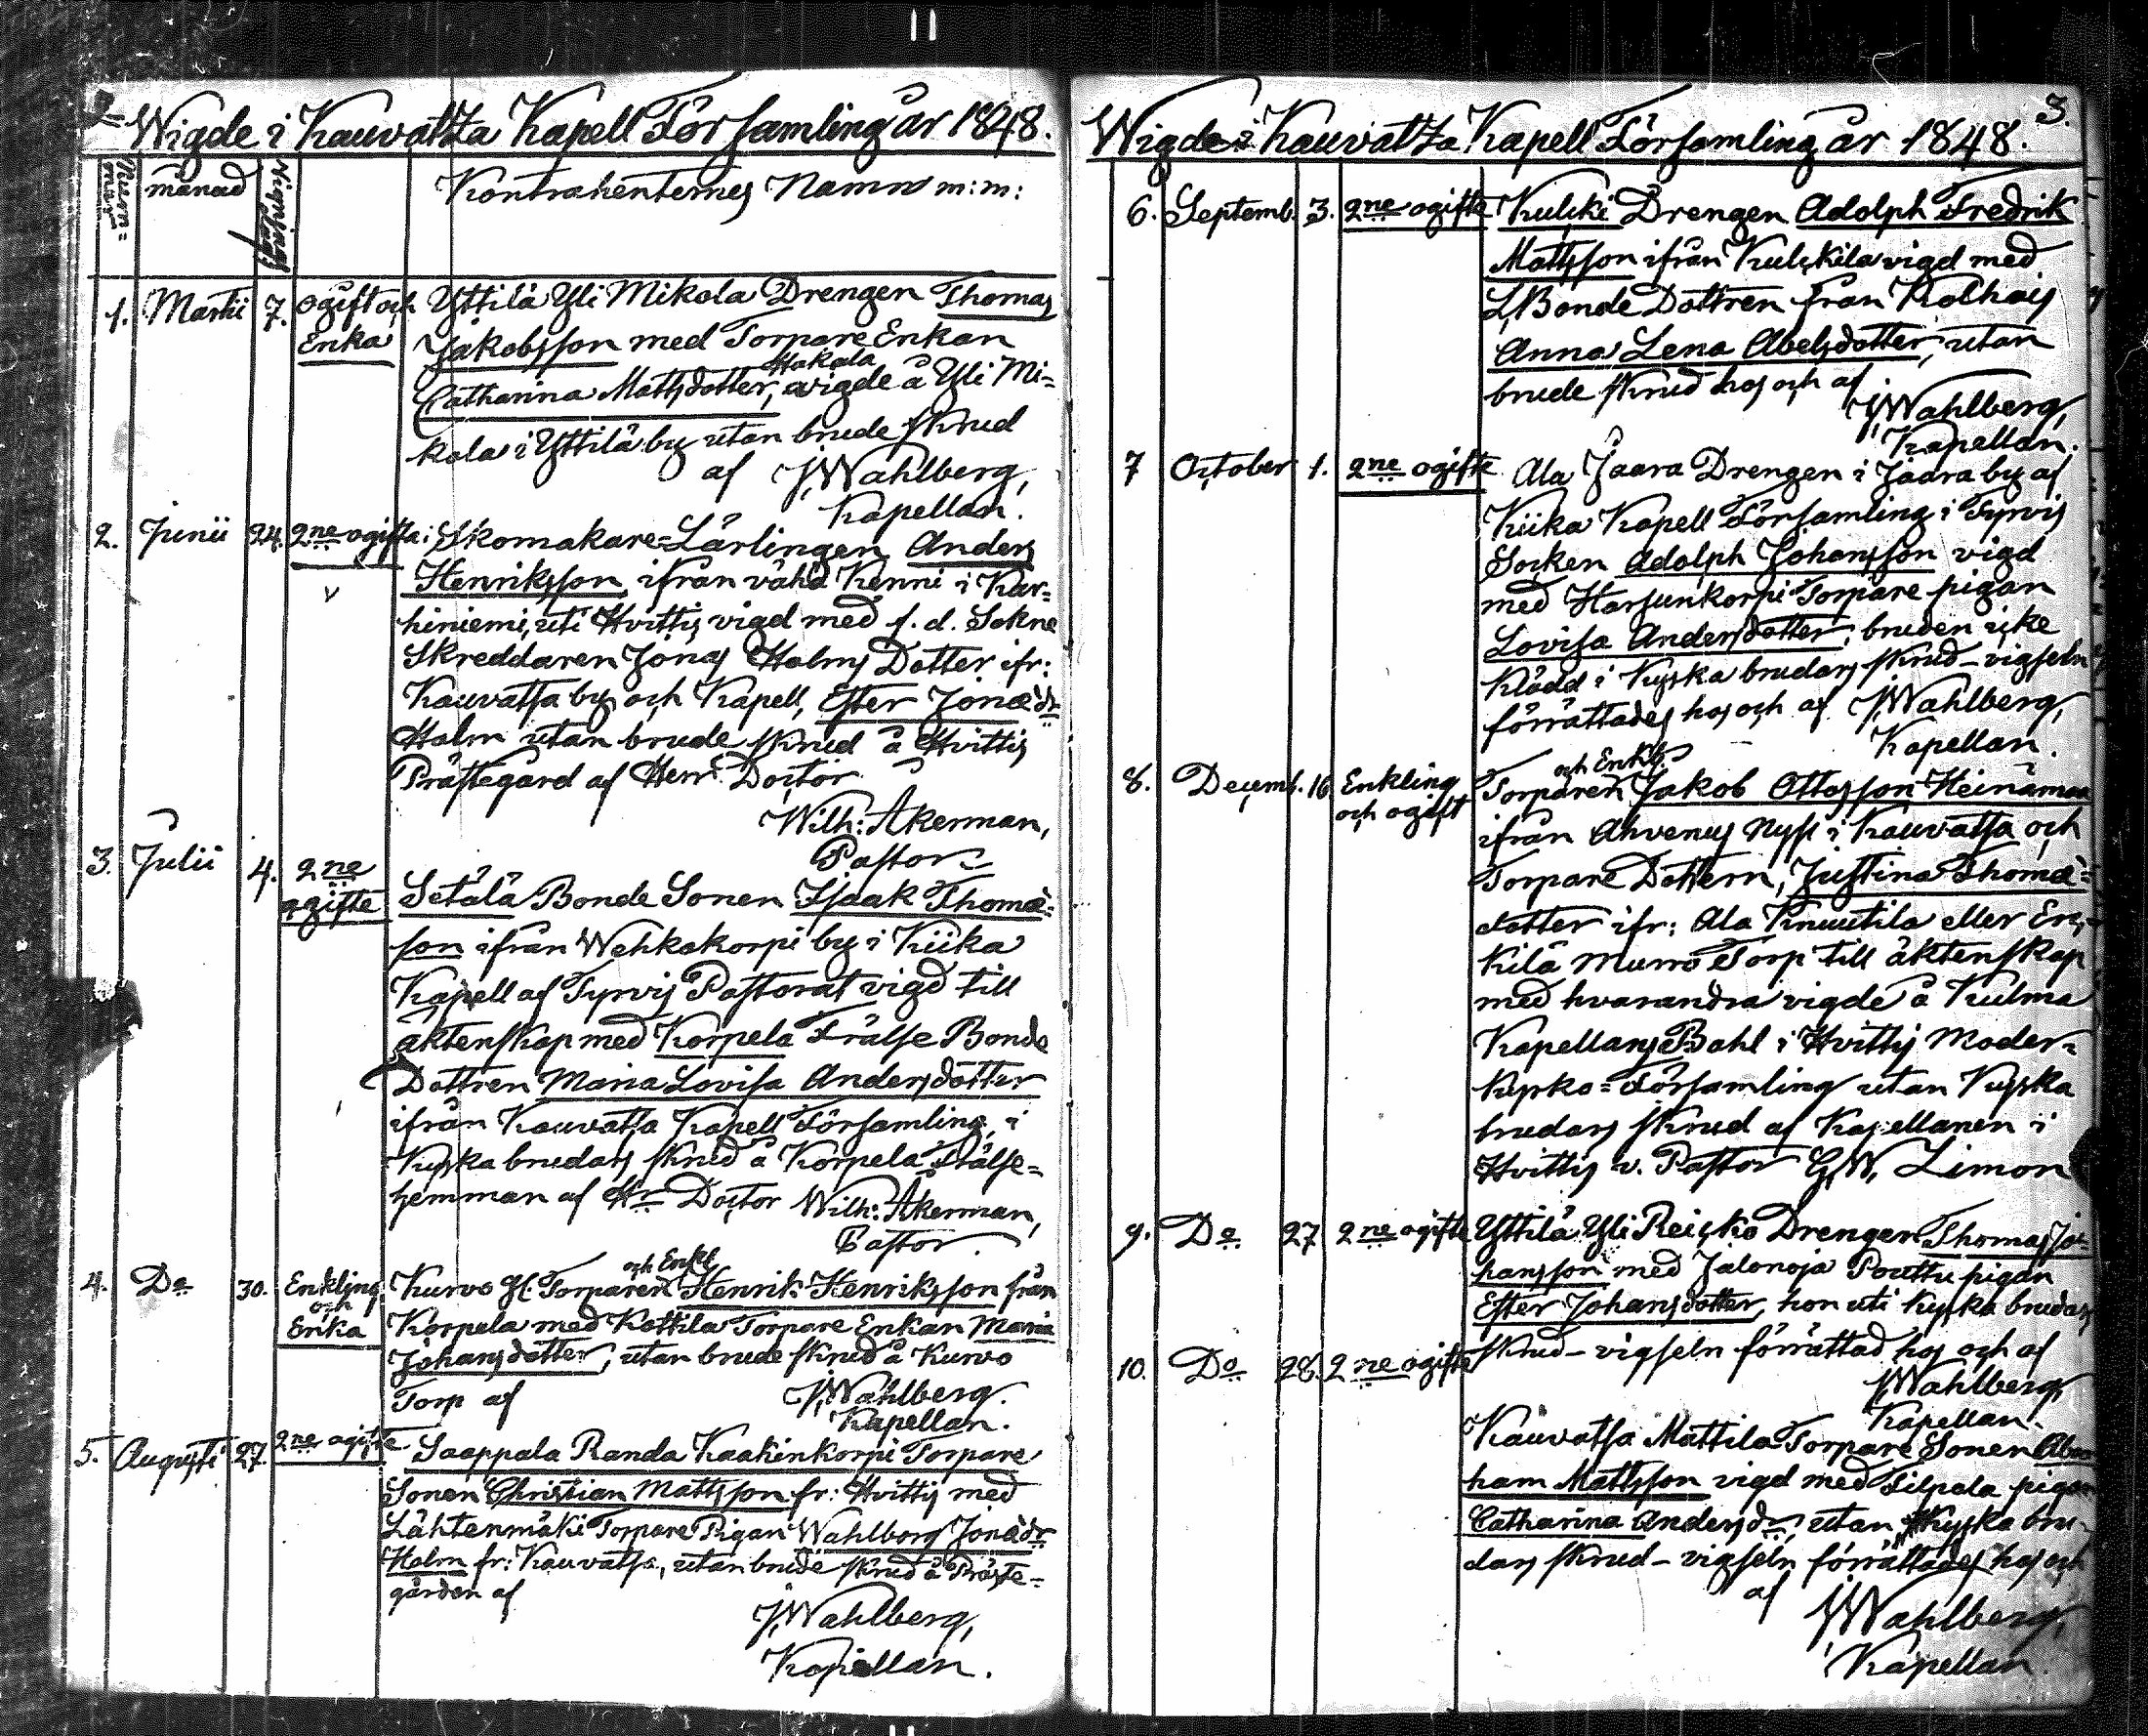 2
Wigde i Kauvatza Kapell Församling år 1848.
månad
Kontrahenternes Namn m:m:
1. Martii 7. ogift och Enka
Yttilä Yli Mikola Drengen Thomas
Jakobsson med Torpare Enkan
Hakala
Catharina Mattsdotter, vigde å Yli Mi=
kola i Yttilä by utan brude skrud
af J. Wahlberg,
Kapellan.
2. Junii 24. 2ne ogifta:
Skomakare=Lärlingen Anders
Henriksson, ifrån vähä Kenni i Kar=
hiniemi, uti Hvittis vigd med f. d. Sokne
Skreddaren Jonas Holms Dotter ifr:
Kauvatsa by och Kapell, Ester Jonædr
Holm utan brude skrud å Hvittis
Prästegård af Herr Doctor
Wilh: Åkerman,
Pastor
3. Julii 4. 2ne ogifte
Setälä Bonde Sonen Isaak Thomæ=
son ifrån Wehkakorpi by i Kiika
Kapell af Tyrvis Pastorat vigd till
äktenskap med Korpela Frälse Bonde
Dottren Maria Lovisa Andersdotter
ifrån Kauvatsa Kapell Församling, i
Kyska brudars skrud å Korpela Frälse=
hemman af Hr Doctor Wilh: Åkerman,
Pastor.
4. Do 30. Enkling och Enka
och Enkl
Kurvo gl. Torparen Henrik Henriksson från
Korpela med Kottila Torpare Enkan Maria
Johansdotter, utan brude skrud å Kurvo
Torp af J. Wahlberg.
Kapellan.
5. Augusti 27. 2ne ogifte
Saappala Randa Kaakinkorpi Torpare
Sonen Christian Mattsson fr: Hvittis med
Lähtenmäki Torpare Pigan Wahlborg Jonædr
Holm fr: Kauvatsa, utan brude skrud å Präste=
gården af
J. Wahlberg,
Kapellan.
3.
Wigde i Kauvatza Kapell Församling år 1848.
6. Septemb. 3. 2ne ogifte
Kulcki Drengen Adolph Fredrik
Mattsson ifrån Kulckila vigd med
L. Bonde Dottren från Kolhais
Anna Lena Abelsdotter, utan
brude skrud hos och af
J. Wahlberg,
Kapellan.
7 October 1. 2ne ogifte
Ala Jaara Drengen i Jaara by af
Kiika Kapell Församling i Tyrvis
Socken Adolph Johansson vigd
med Harsunkorpi Torpare pigan
Lovisa Andersdotter, bruden icke
klädd i Kyska brudars skrud – vigseln
förrättades hos och af J. Wahlberg,
Kapellan.
8. Decemb. 16 Enkling och ogift
och Enkl:
Torparen Jakob Ottosson Heinämaa
ifrån Ahvenus Nyss i Kauvatsa och
Torpare Dottern, Justina Thomæ=
dotter ifr: Ala Knuutila eller Er=
kilä Murro Torp till äktenskap
med hvarandra vigde å Kulma
Kapellans Bohl i Hvittis Moder=
kyrko=Församling utan Kyska
brudars skrud af Kapellanen i
Hvittis v. Pastor G. W. Limon
9. Do 27 2ne ogifte
Yttilä Yli Reicko Drengen Thomas Jo=
hansson med Jalonoja Pouttu pigan
Ester Johansdotter, hon uti kyska brudars
skrud – vigseln förrättad hos och af
J. Wahlberg,
Kapellan.
10. Do 28. 2ne ogifte
Kauvatsa Mattila Torpare Sonen Abra
ham Mattsson vigd med Filpala pigan
Catharina Andersdr, utan Kyska bru=
dars skrud – vigseln förrättades hos och
af J. Wahlberg,
Kapellan